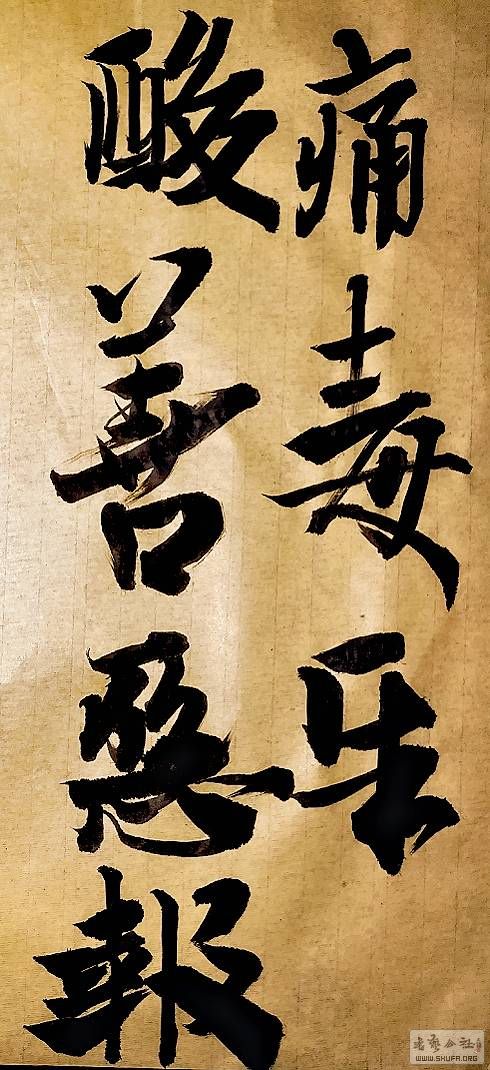 痛毒乐
酸善惡報
書藝公社
WWW.SHUFA.ORG